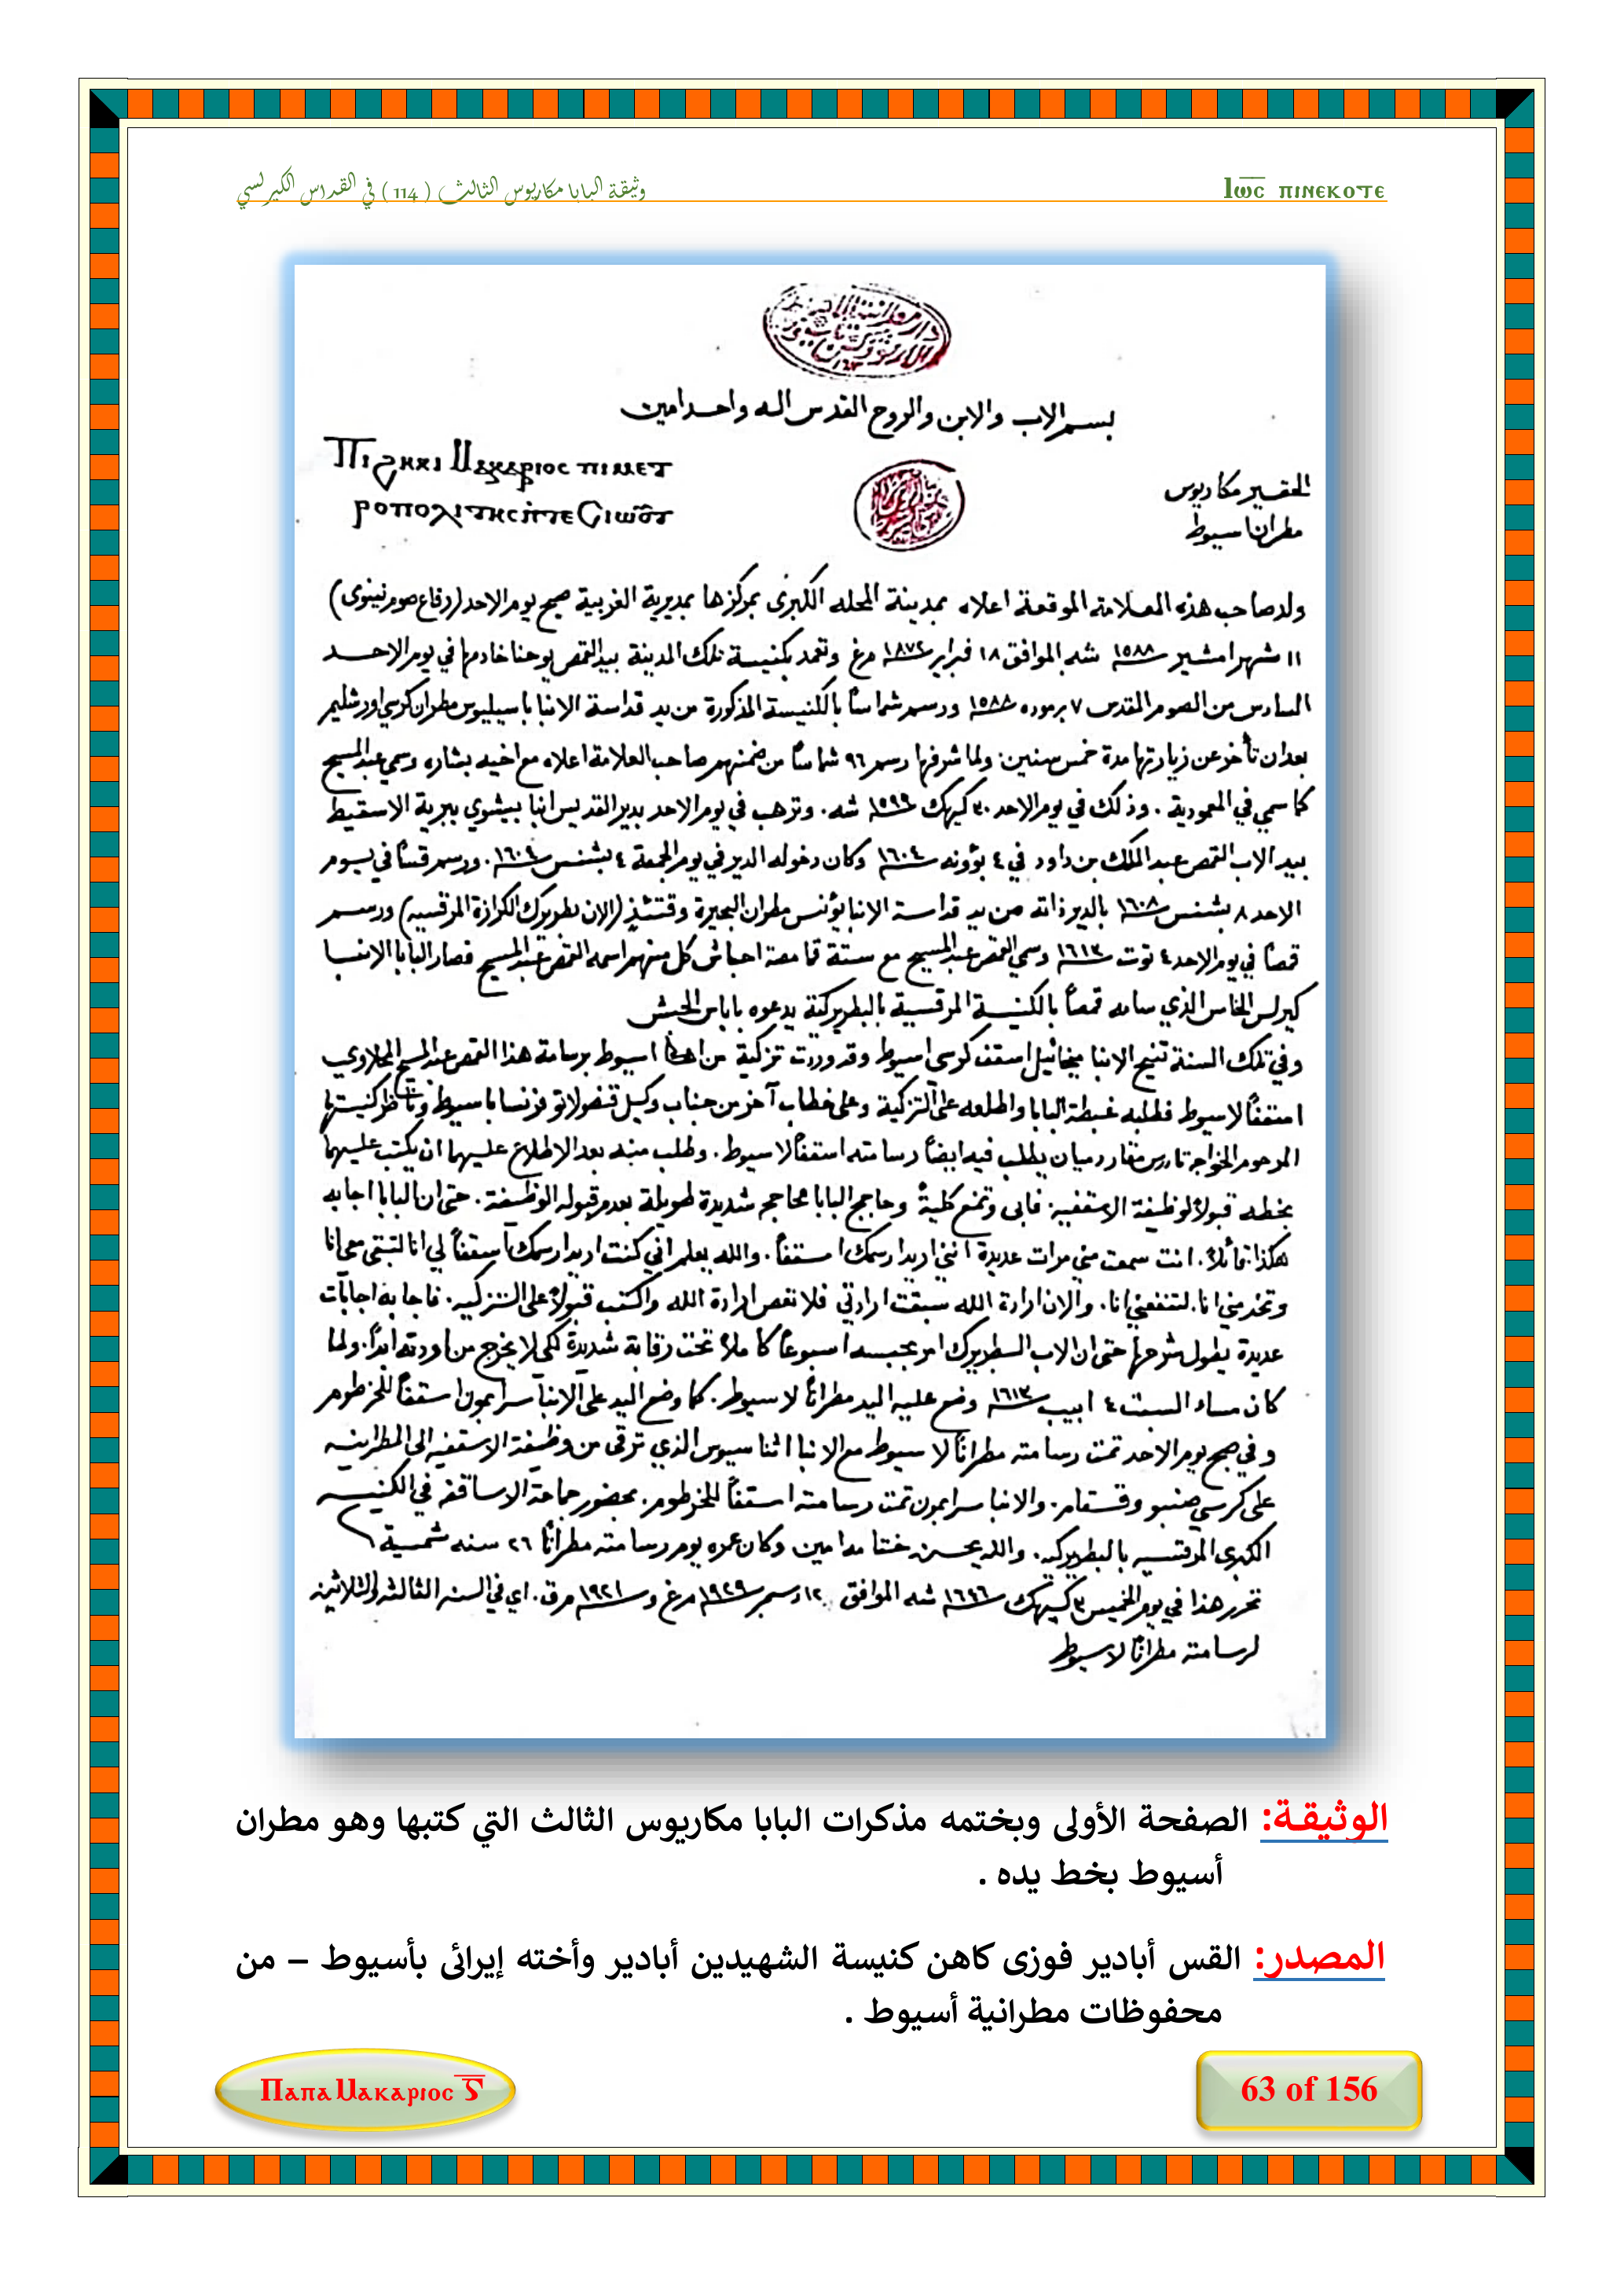 وثيقة البابا مكاريوس الثالث ( 114 ) في القداس الكيرلسي
Ιⲱ̅ⲥ̅ ⲡⲓⲛⲉⲕⲟⲧⲉ
بسم الاب والابن والروح القدس اله واحد امين
Ⲡⲓϩⲏⲕⲓ Ⲙⲁⲕⲁⲣⲓⲟⲥ ⲡⲓⲙⲉⲧ
ⲣⲟⲡⲟⲗⲓⲧⲏⲥ ⲛ̀ⲧⲉ Ⲥⲓⲱⲟⲩⲧ
الحقير مكاريوس
مطران اسيوط
ولد صاحب هذه العلامة الموقعة اعلاه بمدينة المحله الكبرى بمركزها بمديرية الغربية صبح يوم الاحد (رفاع صوم نينوى)
١١ شهر امشير ١٥٨٨ شه الموافق ١٨ فبراير ١٨٧٢ مرغ وتعمد بكنيسة تلك المدينة بيد القمص يوحنا خادمها في يوم الاحد
السادس من الصوم المقدس ٧ برموده ١٥٨٨ ورسم شماساً بالكنيسة المذكورة من يد قداسة الانبا باسيليوس مطران كرسي اورشليم
بعد ان تأخر عن زيارتها مدة خمس سنين. ولما شرفها رسم ٩٦ شماساً من ضمنهم صاحب العلامة اعلاه مع اخيه بشاره وسمي عبد المسيح
كما سمي في المعمودية. وذلك في يوم الاحد ٣٠ كيهك ١٥٩٩ شه. وترهب في يوم الاحد بدير القديس انبا بيشوي ببرية الاسقيط
بيد الاب القمص عبد الملك بن داود في ٤ بؤونه ١٦٠٤ وكان دخوله الدير في يوم الجمعة ٤ بشنس ١٦٠٤. ورسم قساً في يوم
الاحد ٨ بشنس ١٦٠٨ بالدير ذاته من يد قداسة الانبا يؤنس مطران البحيرة وقتئذٍ (الان بطريرك الكرازة المرقسيه) ورسم
قمصاً في يوم الاحد ٤ توت ١٦١٣ وسمي القمص عبد المسيح مع ستة قمامصة احباش كل منهم اسمه القمص عبد المسيح فصار البابا الانبا
كيرلس الخامس الذي سامه قمصاً بالكنيسة المرقسية بالبطريركية يدعوه باباس الحبش
وفي تلك السنة تنيح الانبا ميخائيل اسقف كرسي اسيوط وقد وردت تزكية من اهالي اسيوط برسامة هذا القمص عبد المسيح المحلاوي
اسقفاً لاسيوط فطلبه غبطة البابا واطلعه على التزكية وعلى خطاب آخر من جناب وكيل قنصولاتو فرنسا باسيوط وناظر كنيستها
المرحوم الخواجه تادرس مقار دميان يطلب فيه ايضاً رسامته اسقفاً لاسيوط. وطلب منه بعد الاطلاع عليهما ان يكتب عليهما
بخطه قبولاً لوظيفة الاسقفيه. فابى وتمنع كليةً وحاجج البابا محاججه شديدة طويلة بعدم قبوله الوظيفة. حتى ان البابا اجابه
هكذا قائلاً. انت سمعت مني مرات عديدة انني اريد ارسمك اسقفاً. والله يعلم اني كنت اريد ارسمك اسقفاً لي انا لتبقى معي انا
وتخدمني انا. لتنفعني انا. والان ارادة الله سبقت ارادتي فلا نعص ارادة الله واكتب قبولاً على التزكيه. فاجابه اجابات
عديدة يطول شرحها حتى ان الاب البطريرك امر بحبسه اسبوعاً كاملاً تحت رقابة شديدة لكي لا يخرج من اودته ابداً. ولما
كان مساء السبت ٤ ابيب ١٦١٣ وضع عليه اليد مطراناً لاسيوط. كما وضع اليد على الانبا سرابمون اسقفاً للخرطوم
وفي صبح يوم الاحد تمت رسامته مطراناً لاسيوط مع الانبا اثناسيوس الذي ترقى من وظيفة الاسقفيه الى المطرانيه
على كرسي صنبو وقسقام. والانبا سرابمون تمت رسامته اسقفاً للخرطوم. بحضور جماعة الاساقفه في الكنيسه
الكبرى المرقسيه بالبطريركيه. والله يحسن ختامه امين وكان عمره يوم رسامته مطراناً ٢٦ سنه شمسية
تحرر هذا في يوم الخميس ٣ كيهك ١٦٤٦ شه الموافق ١٢ دسمبر ١٩٢٩ مرغ و ١٩٢١ مرق. اي في السنه الثالثه والثلاثين
لرسامته مطراناً لاسيوط
الوثيقة: الصفحة الأولى وبختمه مذكرات البابا مكاريوس الثالث التي كتبها وهو مطران
أسيوط بخط يده .
المصدر: القس أبادير فوزى كاهن كنيسة الشهيدين أبادير وأخته إيرائى بأسيوط – من
محفوظات مطرانية أسيوط .
Ⲡⲁⲡⲁ Ⲙⲁⲕⲁⲣⲓⲟⲥ Ⲅ̅
63 of 156